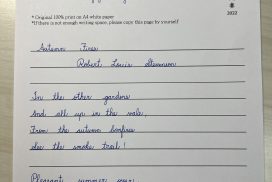 2022
* Original 100% print on A4 white paper
*If there is not enough writing space, please copy this page by yourself
Autumn Fires
Robert Louis Stevenson
In the other gardens
And all up in the vale,
From the autumn bonfires
See the smoke trail!
Pleasant summer over